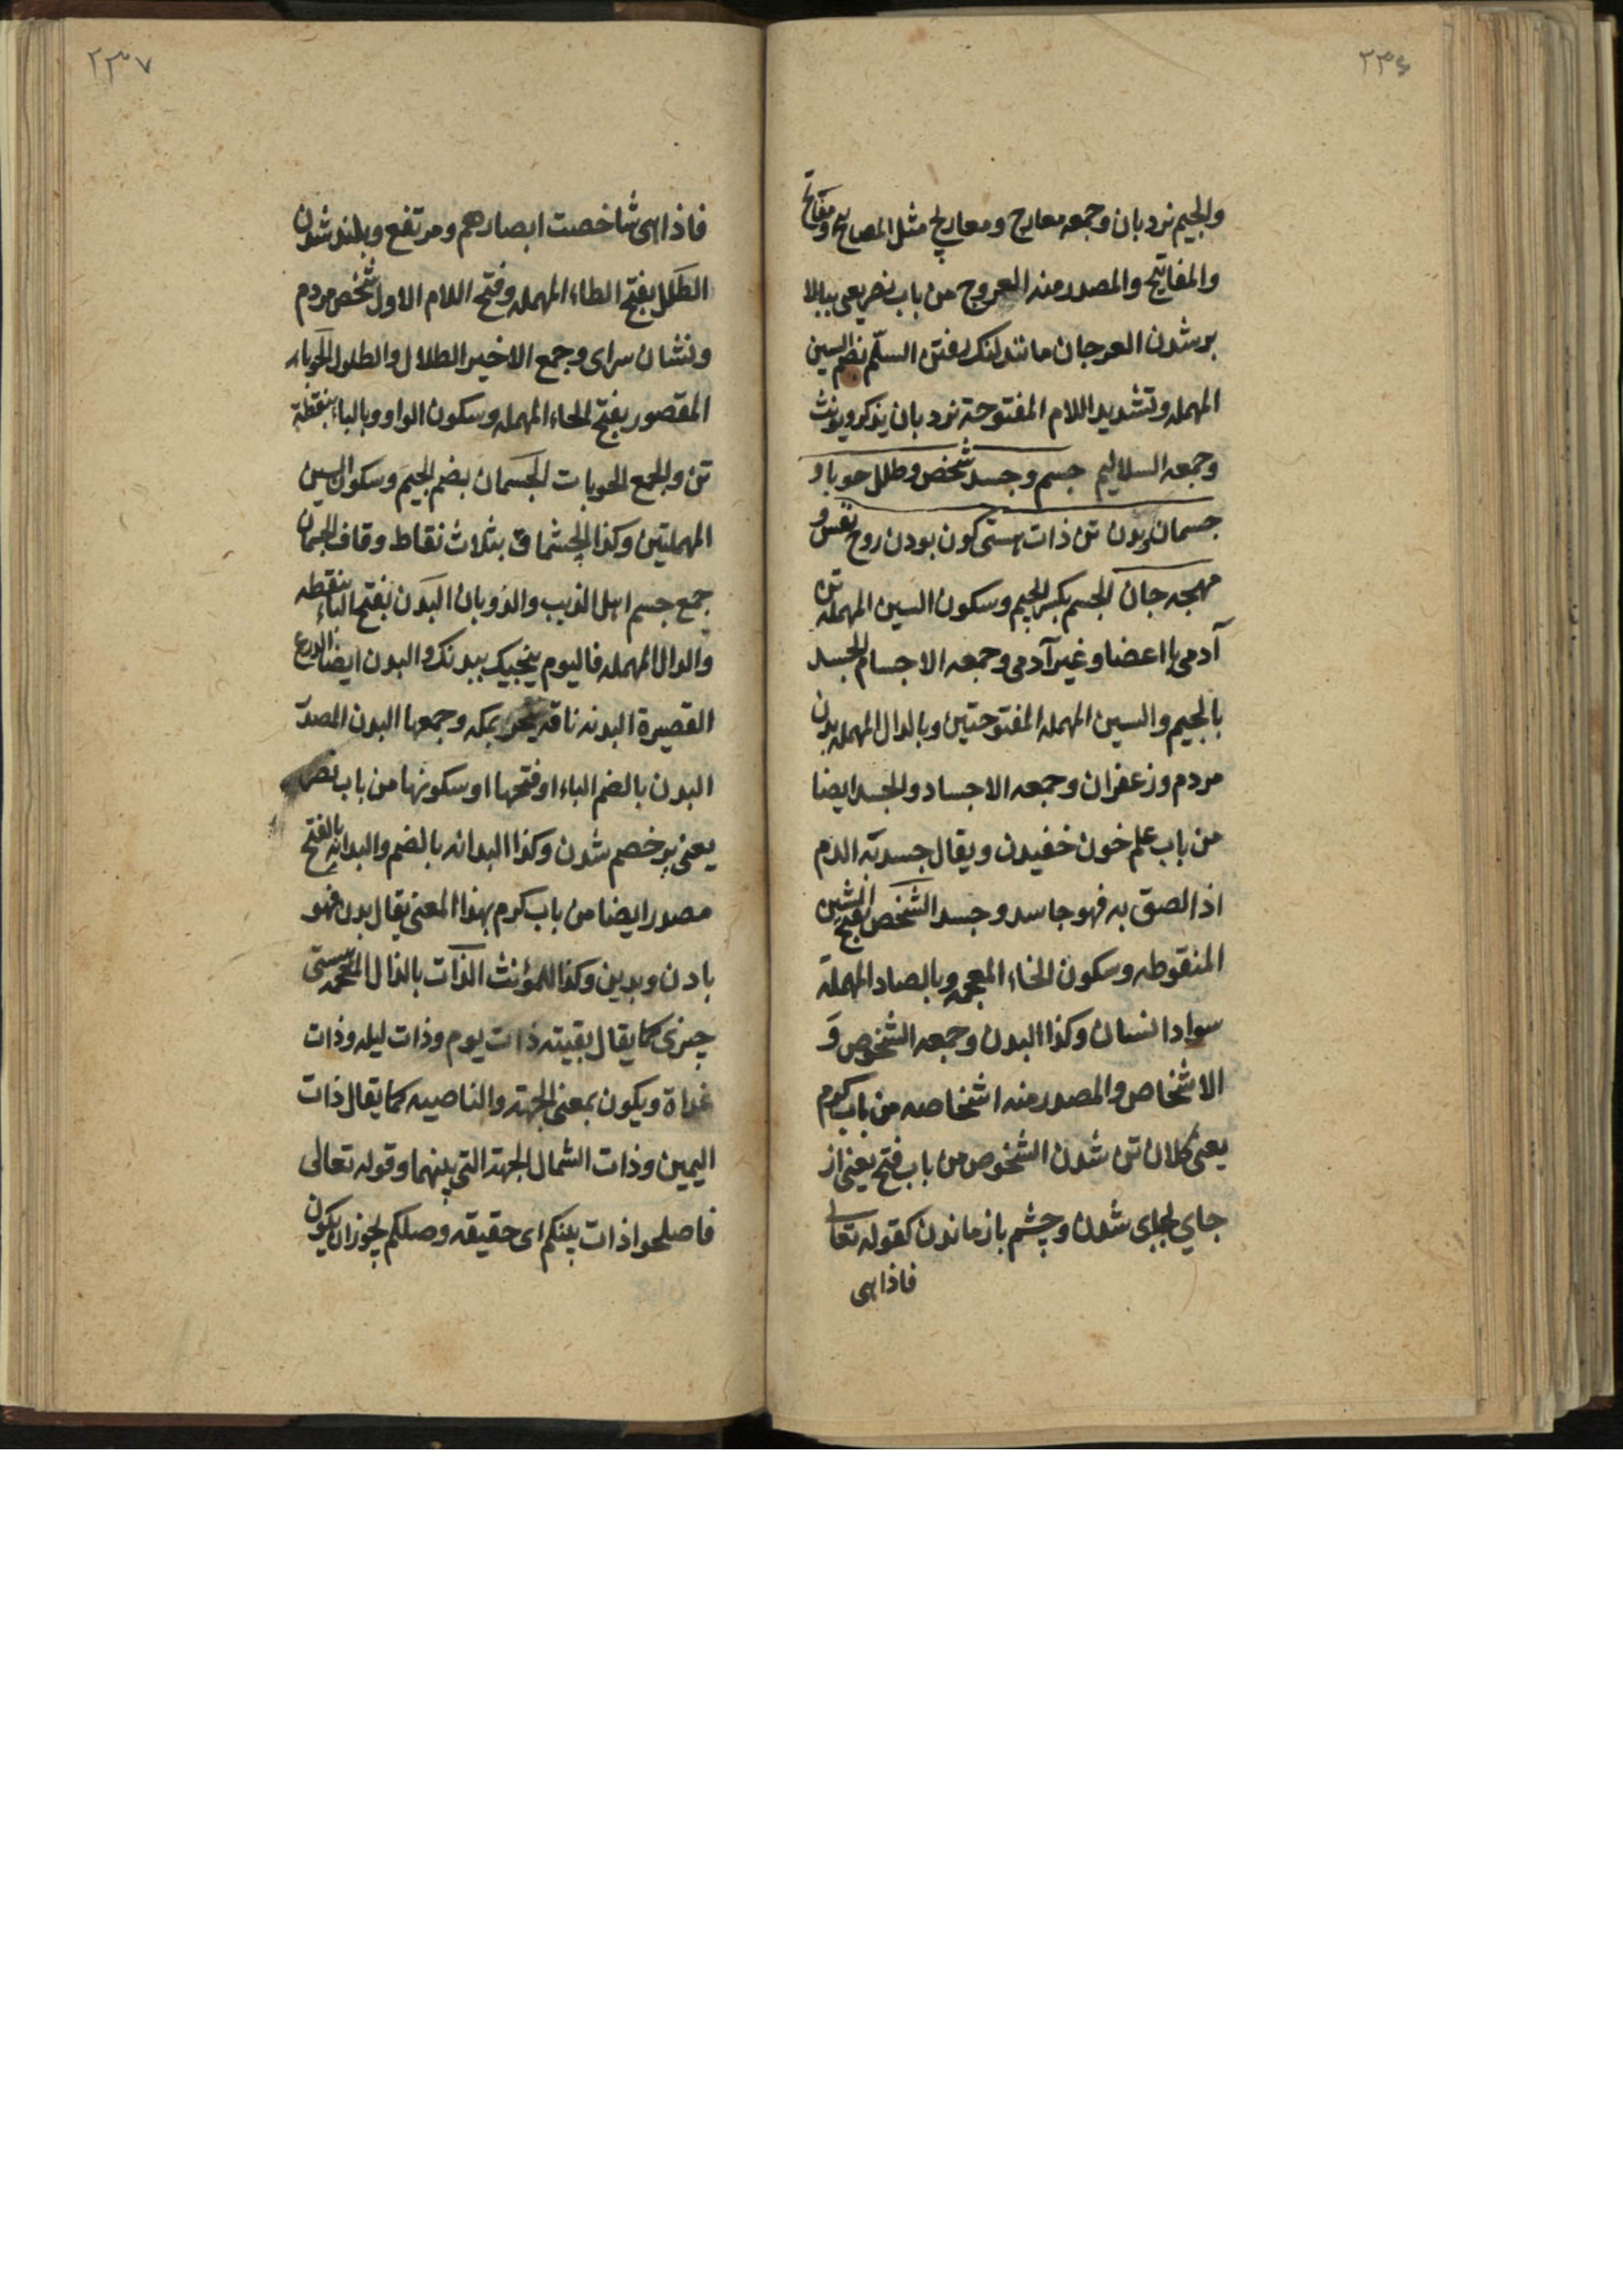 ۲۳۶
والجیم نردبان وجمعه معارج ومعاریج مثل المصابیح ومفاتح
والمفاتیح والمصدر منه العروج من باب نصر یعنی ببالا
بر شدن العرجان مانند لنگ رفتن السلّم بضم السین
المهمله وتشدید اللام المفتوحة نردبان یذکر ویونث
وجمعه السلالیم جسم وجسد شخص وطلل حوبا و
جسمان وبدن تن ذات هستی کون بودن روح نفس و
مهجه جان الجسم بکسر الجیم وسکون السین المهمله تن
آدمی با اعضا وغیر آدمی وجمعه الاجسام الجسد
بالجیم والسین المهمله المفتوحتین وبالدال المهمله بدن
مردم وزعفران وجمعه الاجساد والجسد ایضا
من باب علم خون خفیدن ویقال جسد به الدم
اذا لصق به فهو جاسد وجسد الشخص بفتح الشین
المنقوطه وسکون الخاء المعجمه وبالصاد المهملة
سواد انسان وکذا البدن وجمعه الشخوص وَ
الاشخاص والمصدر منه اشخاصه من باب کرم
یعنی کلان تن شدن الشخوص من باب فتح یعنی از
جای بجای شدن وچشم باز ماندن کقوله تعالی
فاذا هی
۲۳۷
فاذا هی شاخصت ابصارهم ومرتفع وبلند شدن
الطَلَل بفتح الطاء المهمله وفتح اللام الاول شخص مردم
ونشان سرای وجمع الاخیر الطلال والطلول الحَوباء
المقصور بفتح الحاء المهمله وسکون الواو وبالباء بنقطة
تن والجمع الحوبات الجَسمان بضم الجیم وسکون السین
المهملتین وکذا الجشماق بثلاث نقاط وقاف الجسمان
جمع جسم اهل الذیب والذوبان البَدَن بفتح الباء بنقطه
والدال المهمله فالیوم ینجیک ببدنک والبدن ایضا الدرع
القصیرة البدنه ناقه ینحر بمکه وجمعها البدن المصدر
البدن بالضم الباء او فتحها او سکونها من باب نصر
یعنی بر خصم شدن وکذا البدانه بالضم والبدانه بالفتح
مصدر ایضا من باب کرم بهذا المعنی یقال بدن فهو
بادن وبدین وکذا للمؤنث الذآت بالذال المعجمه هستی
چیزی کما یقال بقیته ذات یوم وذات لیله وذات
غداة ویکون بمعنی الجهته والناصیه کما یقال ذات
الیمین وذات الشمال الجهته التی بینهما وقوله تعالی
فاصلحوا ذات بینکم ای حقیقه وصلکم یجوز ان یکون